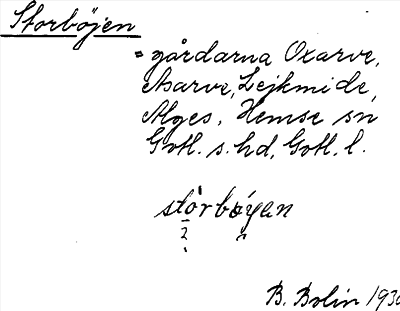 Storböjen
= gårdarna Oxarve,
Asarve, Lejkmide,
Alges, Hemse sn
Gotl. s. hd, Gotl. l.
stòrbǿyan
2
B. Bolin 193